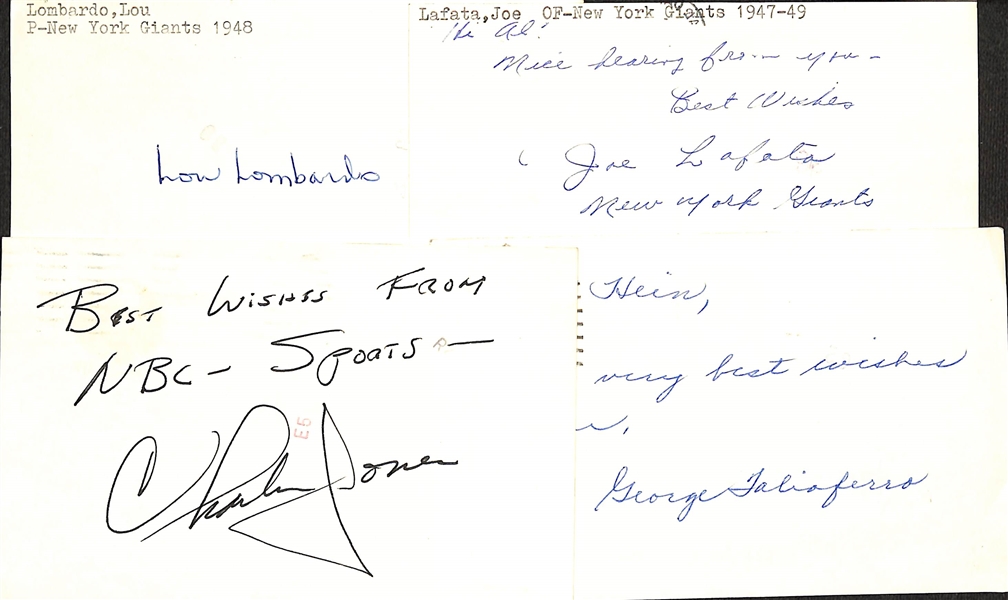 Lombardo,Lou
P-New York Giants 1948
Lou Lombardo
Lafata,Joe OF-New York Giants 1947-49
Hi Al!
Nice hearing from you -
Best Wishes
Joe Lafata
New York Giants
BEST WISHES FROM
NBC - SPORTS -
Charlie Jones
E6
Hein,
very best wishes
George Taliaferro